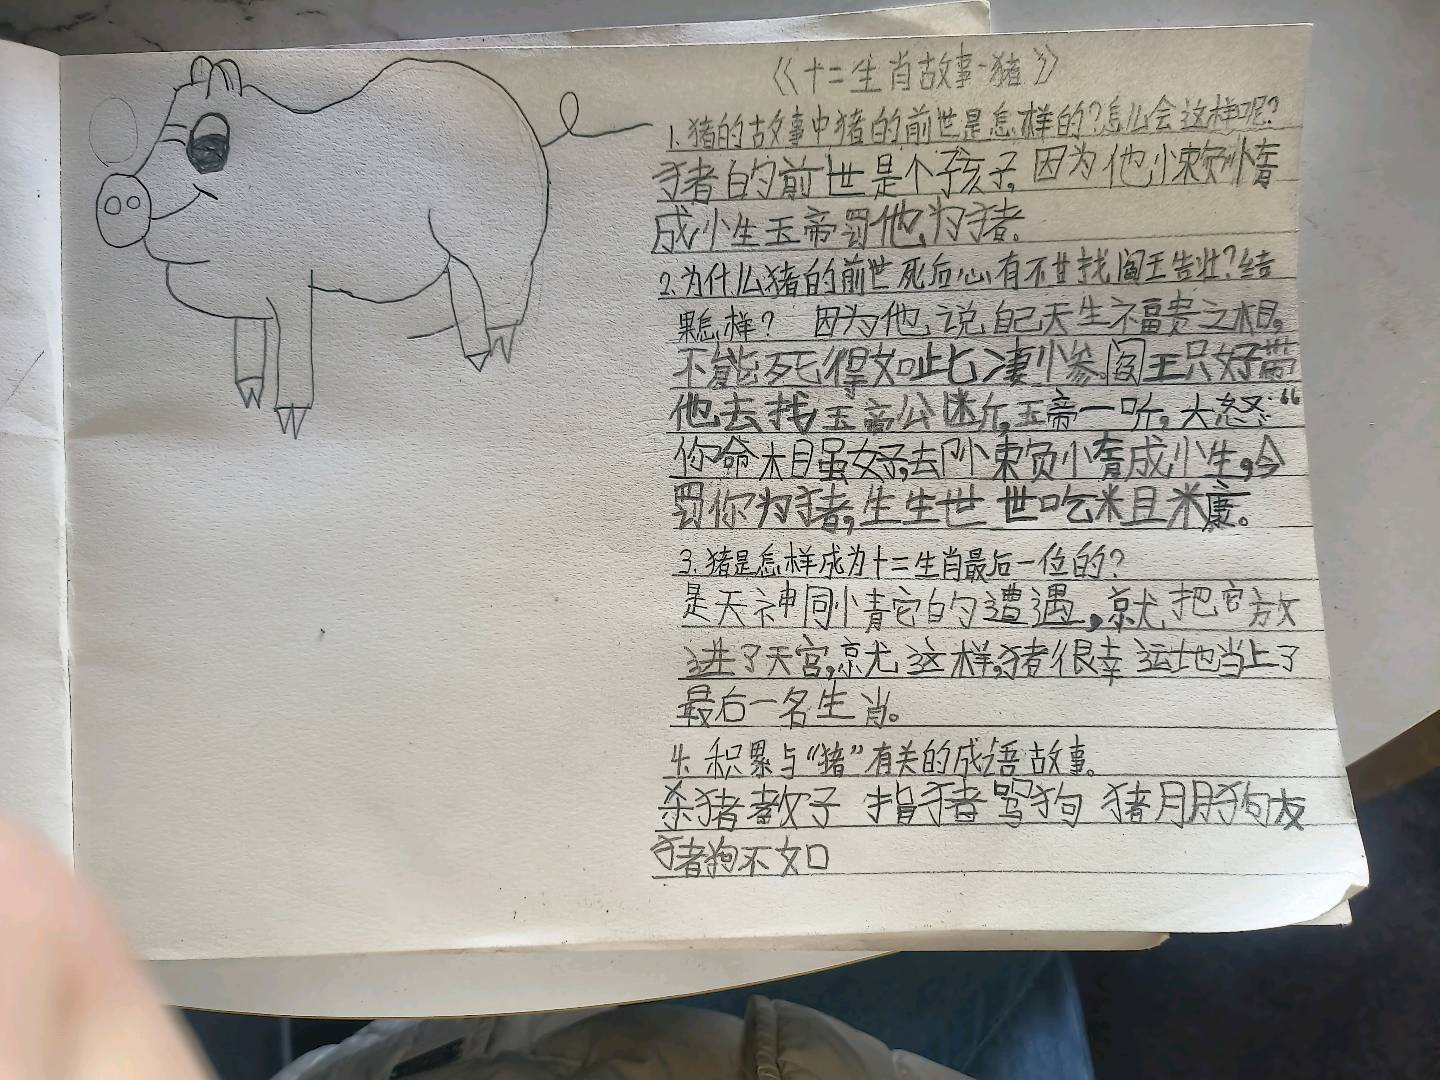 《十二生肖故事-猪》
1.猪的故事中猪的前世是怎样的?怎么会这样呢?
猪的前世是个孩子,因为他懒惰
成性玉帝罚他为猪。
2.为什么猪的前世死后心有不甘找阎王告状?结
果怎样? 因为他说自己天生福贵之相,
不能死得如此凄惨。阎王只好带
他去找玉帝公断,玉帝一听,大怒:“
你命相虽好,却懒惰成性,今
罚你为猪,生生世世吃粗糠。
3.猪是怎样成为十二生肖最后一位的?
是天神同情它的遭遇,就把它放
进了天宫,就这样,猪很幸运地当上了
最后一名生肖。
4.积累与“猪”有关的成语故事。
杀猪教子 指猪骂狗 猪朋狗友
猪狗不如